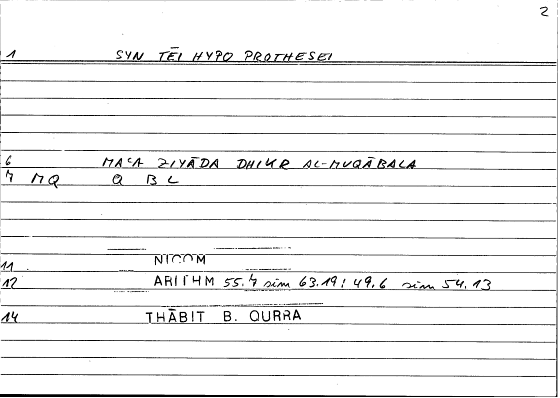 2
1 SYN TĒI HYPO PROTHESEI
6 MAʿA ZIYĀDA DHIKR AL-MUQĀBALA
7 MQ Q B L
11 NICOM
12 ARITHM 55.7 sim 63.19; 49.6 sim 54.13
14 THĀBIT B. QURRA